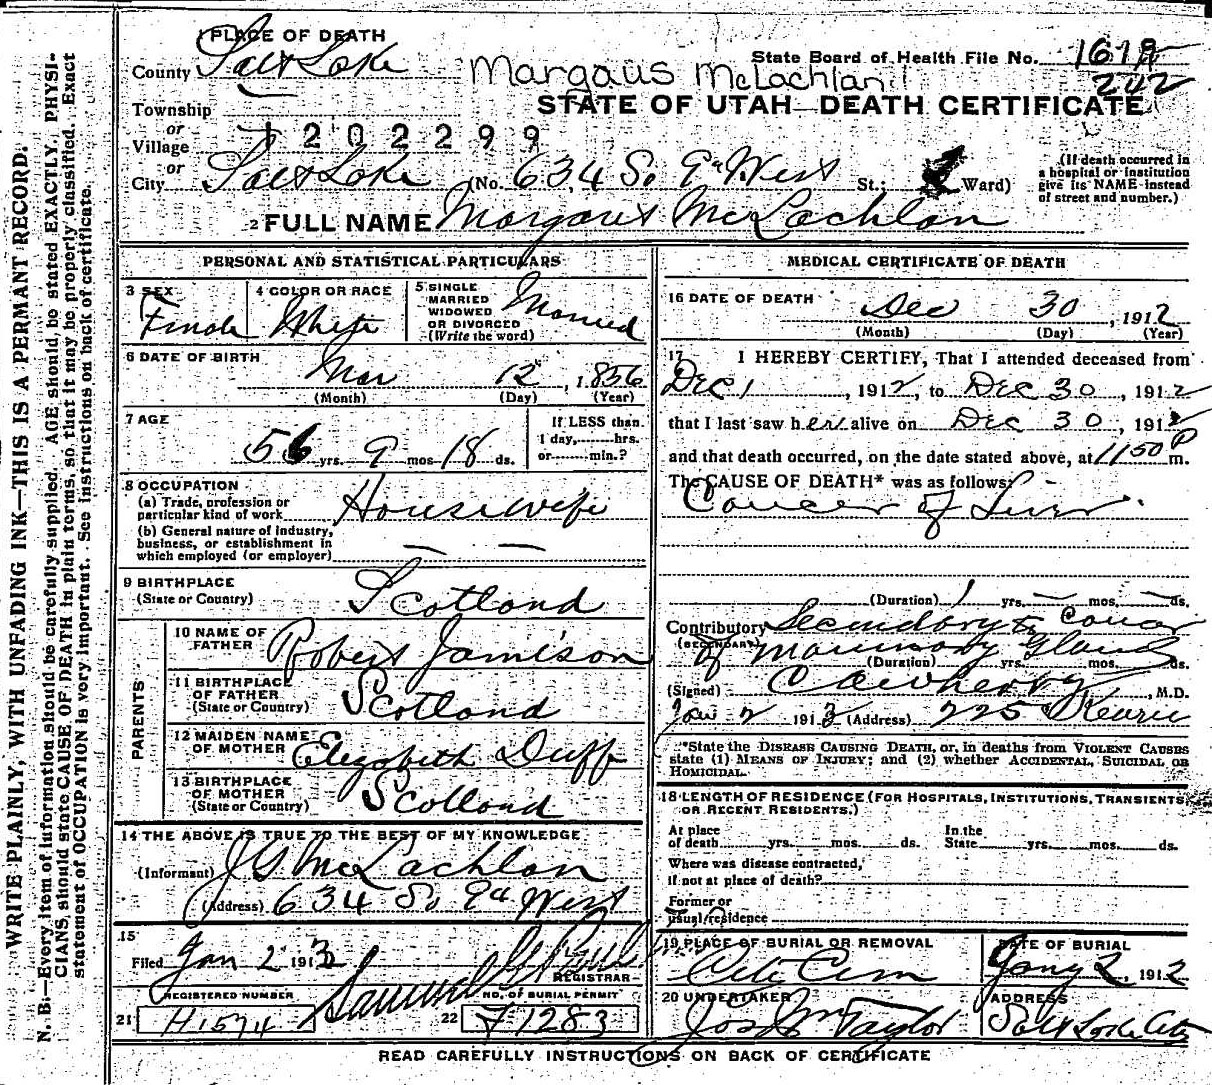 1 PLACE OF DEATH
County Salt Lake
Margaus McLachlan
State Board of Health File No. 1619
242
STATE OF UTAH—DEATH CERTIFICATE
Township
or
Village
1202299
or
City Salt Lake (No. 634 So 9th West St.; Ward)
(If death occurred in
a hospital or institution
give its NAME instead
of street and number.)
2 FULL NAME Margaret McLachlan
PERSONAL AND STATISTICAL PARTICULARS
3 SEX
Female
4 COLOR OR RACE
White
5 SINGLE
MARRIED
WIDOWED
OR DIVORCED
(Write the word)
Married
6 DATE OF BIRTH
Mar 12, 1856
(Month) (Day) (Year)
7 AGE
56 yrs. 9 mos 18 ds.
If LESS than
1 day, hrs.
or min.?
8 OCCUPATION
(a) Trade, profession or
particular kind of work Housewife
(b) General nature of industry,
business, or establishment in
which employed (or employer)
9 BIRTHPLACE
(State or Country) Scotland
PARENTS
10 NAME OF
FATHER Robert Jamison
11 BIRTHPLACE
OF FATHER
(State or Country) Scotland
12 MAIDEN NAME
OF MOTHER Elizabeth Duff
13 BIRTHPLACE
OF MOTHER
(State or Country) Scotland
14 THE ABOVE IS TRUE TO THE BEST OF MY KNOWLEDGE
(Informant) J S McLachlan
(Address) 634 So 9th West
15
Filed Jan 2 1913
Samuel G Paul
REGISTRAR
REGISTERED NUMBER
21 H1574
NO. OF BURIAL PERMIT
22 F1283
MEDICAL CERTIFICATE OF DEATH
16 DATE OF DEATH
Dec 30, 1912
(Month) (Day) (Year)
17 I HEREBY CERTIFY, That I attended deceased from
Dec 1, 1912, to Dec 30, 1912
that I last saw her alive on Dec 30, 1912
and that death occurred, on the date stated above, at 1150 P m.
The CAUSE OF DEATH* was as follows:
Cancer of Liver
(Duration) 1 yrs. — mos. — ds.
Contributory Secondary to Cancer
(SECONDARY) of Mammary Gland
(Duration) yrs. mos. ds.
(Signed) M.D.
Jan 2 1913 (Address) 225
*State the DISEASE CAUSING DEATH, or, in deaths from VIOLENT CAUSES
state (1) MEANS OF INJURY; and (2) whether ACCIDENTAL, SUICIDAL OR
HOMICIDAL.
18 LENGTH OF RESIDENCE (FOR HOSPITALS, INSTITUTIONS, TRANSIENTS
OR RECENT RESIDENTS.)
At place
of death yrs. mos. ds.
In the
State yrs. mos. ds.
Where was disease contracted,
if not at place of death?
Former or
usual residence
19 PLACE OF BURIAL OR REMOVAL
City Cem
DATE OF BURIAL
Jany 2, 1912
20 UNDERTAKER
Jos Wm Taylor
ADDRESS
Salt Lake City
READ CAREFULLY INSTRUCTIONS ON BACK OF CERTIFICATE
WRITE PLAINLY, WITH UNFADING INK—THIS IS A PERMANT RECORD.
N. B.—Every item of information should be carefully supplied. AGE should be stated EXACTLY. PHYSI-
CIANS should state CAUSE OF DEATH in plain terms, so that it may be properly classified. Exact
statement of OCCUPATION is very important. See instructions on back of certificate.